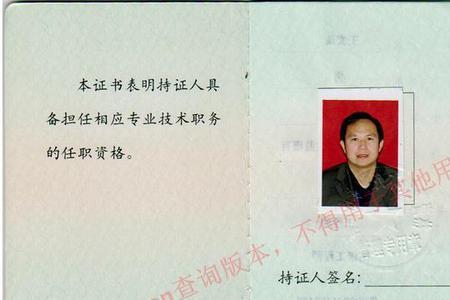 本证书表明持证人具
备担任相应专业技术职务
的任职资格。
持证人签名:
查询版本，不得用于其他用